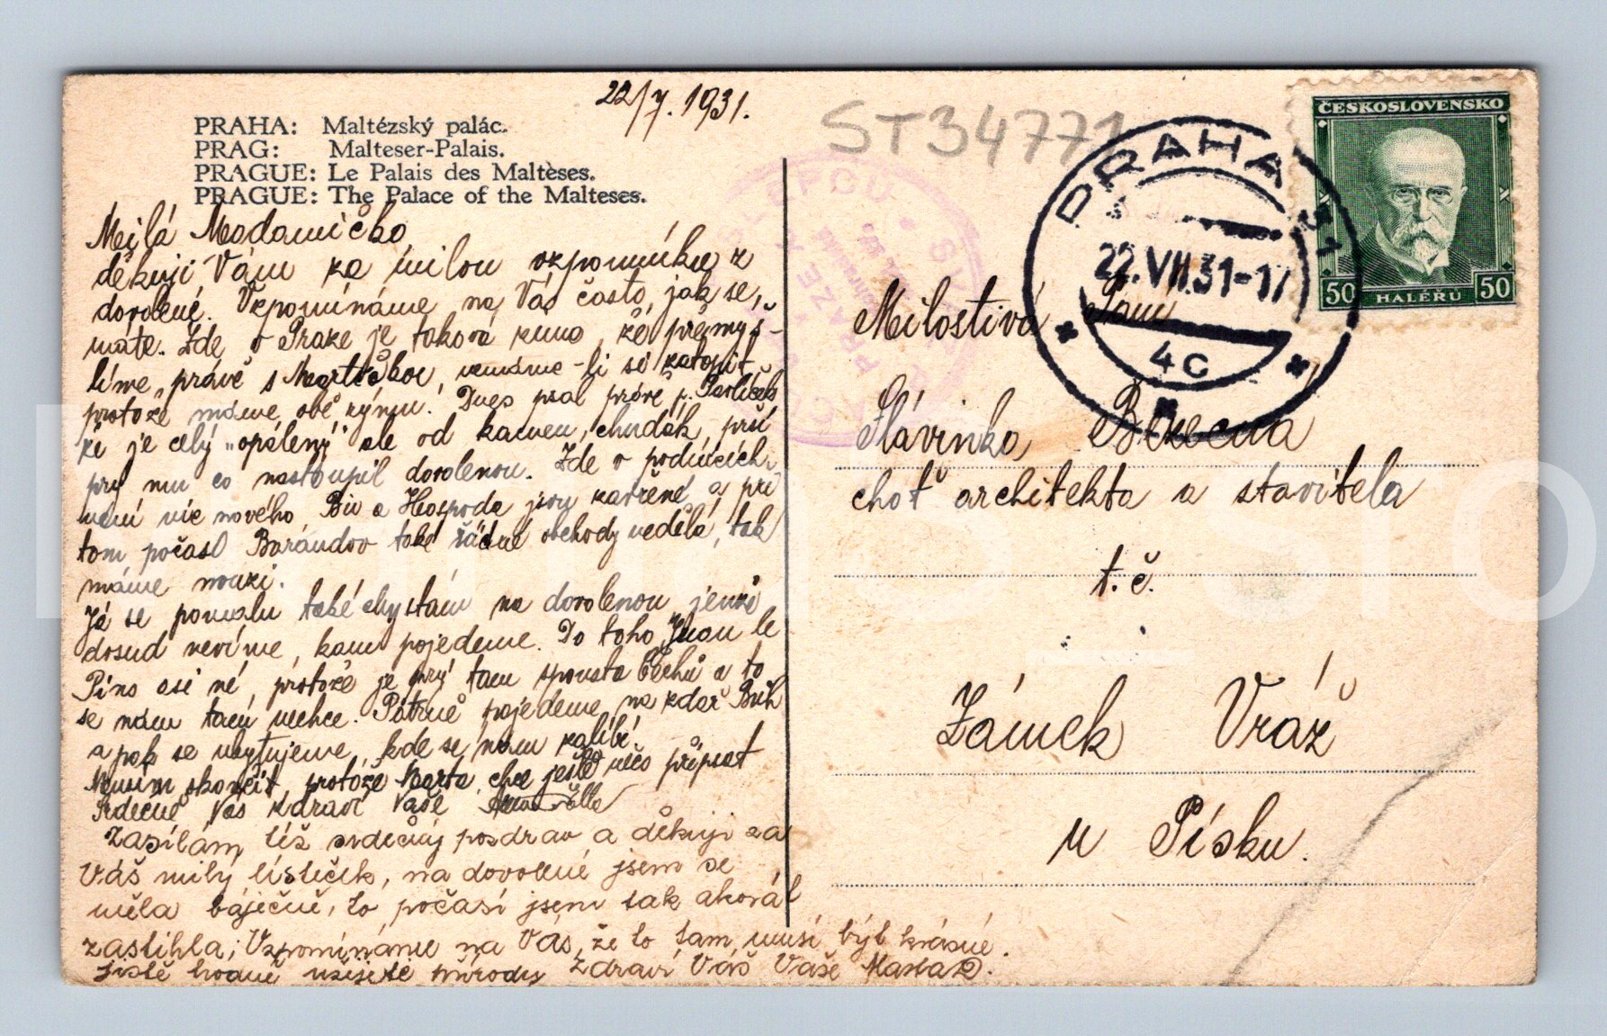 22/7. 1931.
ST34771
PRAHA: Maltézský palác.
PRAG: Malteser-Palais.
PRAGUE: Le Palais des Maltèses.
PRAGUE: The Palace of the Malteses.
Milá Madamičko
děkuji Vám za milou vzpomínku z
dovolené. Vzpomínáme na Vás často, jak se
máte. Zde v Praze je taková zima, že přemýš-
líme, právě s, nemáme-li si zatopit,
protože máme obě rýmu. Dnes psal právě p. Pavlíček
že je celý „opálený" ale od kamen, chudák, prší
prý mu co nastoupil dovolenou. Zde v
není nic nového. a Hospoda jsou zavřené a při
tom počasí Barandov také žádné obchody nedělá, tak
máme nouzi.
Já se pomalu také chystám na dovolenou jenže
dosud nevíme, kam pojedeme. Do toho Juan le
Pins asi né, protože je prý tam spousta Čechů a to
se nám tam nechce. Patrně pojedeme na zdař Bůh
a pak se ubytujeme, kde se nám zalíbí.
Musím skončit, protože Marta chce ještě něco připsat
Srdečně Vás zdraví Vaše
Zasílám též srdečný pozdrav a děkuji za
Váš milý lísteček, na dovolené jsem se
měla báječně, to počasí jsem tak akorát
zastihla; Vzpomínáme na Vás, že to tam musí být krásné.
jistě hodně užijete přírody Zdraví Váš Vaše Marta
ČESKOSLOVENSKO
50 HALÉŘŮ 50
PRAHA 31
22.VII.31-17
4c
Milostivá Paní
Slávinka
choť architekta a stavitela
t.č.
Zámek Vráž
u Písku.